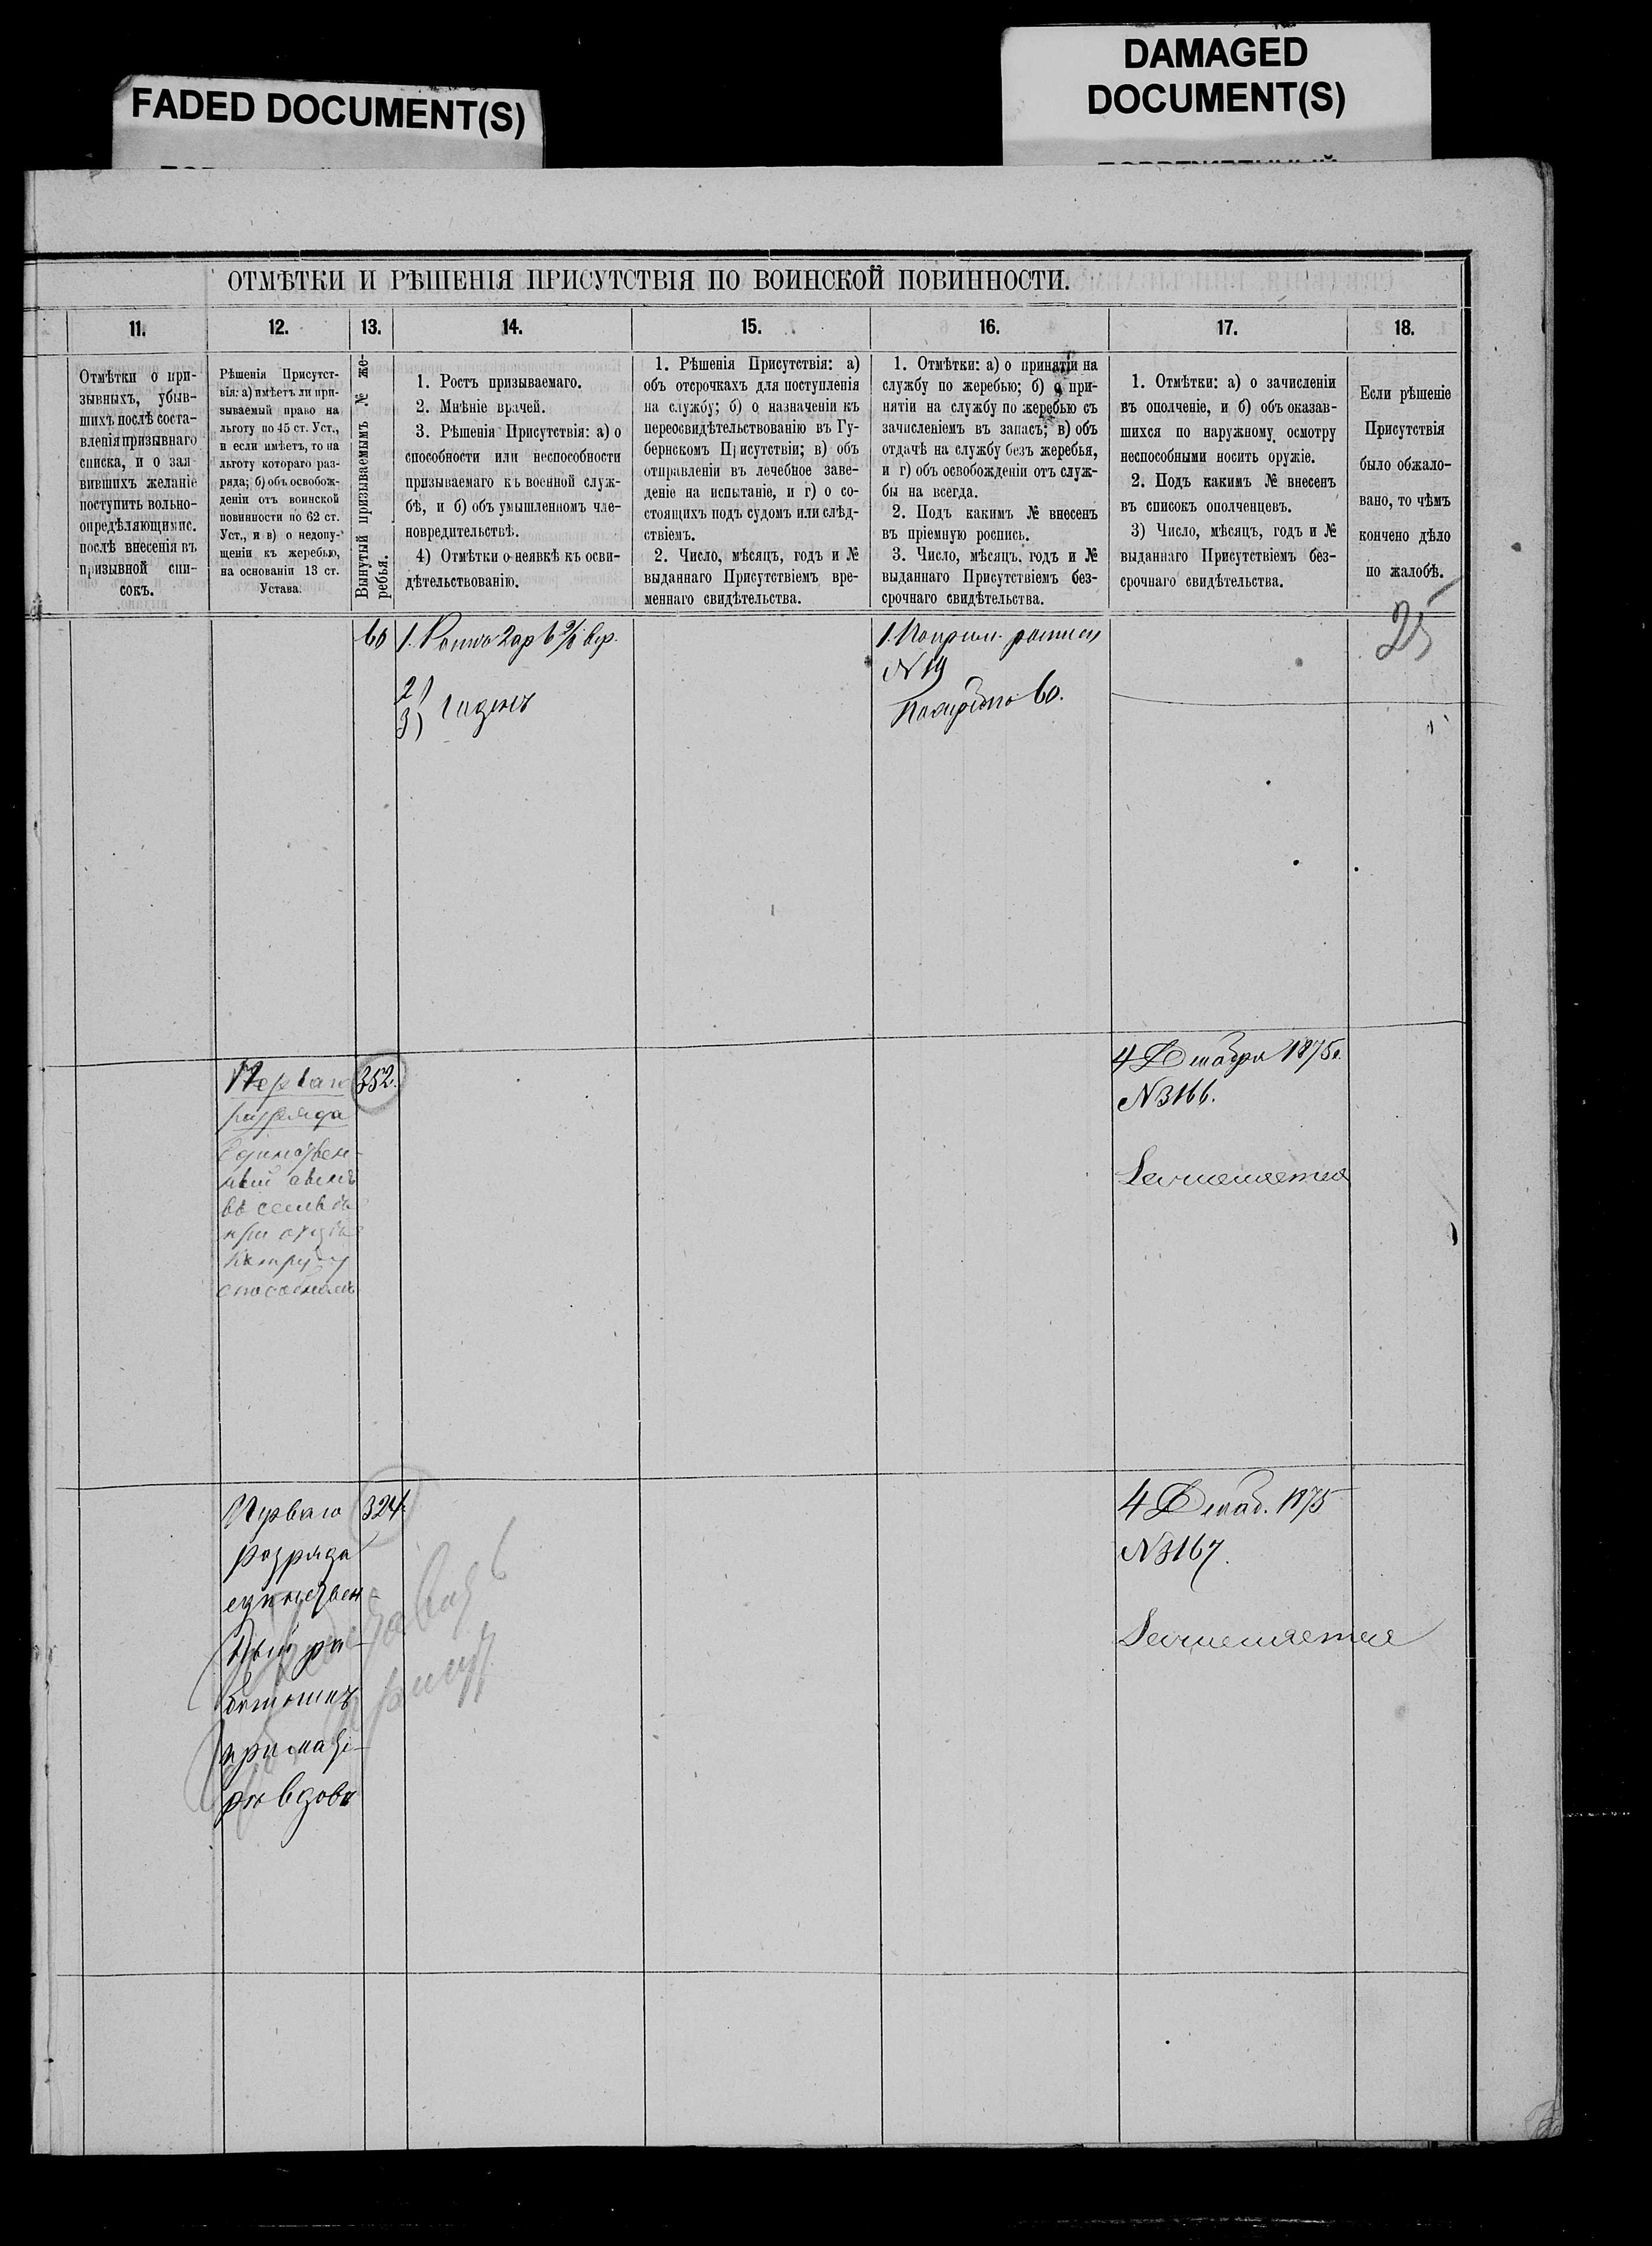 FADED DOCUMENT(S)
DAMAGED
DOCUMENT(S)
ОТМѢТКИ И РѢШЕНІЯ ПРИСУТСТВІЯ ПО ВОИНСКОЙ ПОВИННОСТИ.
11.
12.
13.
14.
15.
16.
17.
18.
Отмѣтки о при-
зывныхъ, убыв-
шихъ послѣ соста-
вленія призывнаго
списка, и о зая-
вившихъ желаніе
поступить вольно-
опредѣляющимис.
послѣ внесенія въ
призывной спи-
сокъ.
Рѣшенія Присутст-
вія: а) имѣетъ ли при-
зываемый право на
льготу по 45 ст. Уст.,
и если имѣетъ, то на
льготу котораго раз-
ряда; б) объ освобож-
деніи отъ воинской
повинности по 62 ст.
Уст., и в) о недопу-
щеніи къ жеребью,
на основаніи 13 ст.
Устава.
Вынутый призываемымъ № же-
ребья.
1. Ростъ призываемаго.
2. Мнѣніе врачей.
3. Рѣшенія Присутствія: а) о
способности или неспособности
призываемаго къ военной служ-
бѣ, и б) объ умышленномъ чле-
новредительствѣ.
4) Отмѣтки о неявкѣ къ осви-
дѣтельствованію.
1. Рѣшенія Присутствія: а)
объ отсрочкахъ для поступленія
на службу; б) о назначеніи къ
переосвидѣтельствованію въ Гу-
бернскомъ Присутствіи; в) объ
отправленіи въ лечебное заве-
деніе на испытаніе, и г) о со-
стоящихъ подъ судомъ или слѣд-
ствіемъ.
2. Число, мѣсяцъ, годъ и №
выданнаго Присутствіемъ вре-
меннаго свидѣтельства.
1. Отмѣтки: а) о принятіи на
службу по жеребью; б) о при-
нятіи на службу по жеребью съ
зачисленіемъ въ запасъ; в) объ
отдачѣ на службу безъ жеребья,
и г) объ освобожденіи отъ служ-
бы на всегда.
2. Подъ какимъ № внесенъ
въ пріемную роспись.
3. Число, мѣсяцъ, годъ и №
выданнаго Присутствіемъ без-
срочнаго свидѣтельства.
1. Отмѣтки: а) о зачисленіи
въ ополченіе, и б) объ оказав-
шихся по наружному осмотру
неспособными носить оружіе.
2. Подъ какимъ № внесенъ
въ списокъ ополченцевъ.
3) Число, мѣсяцъ, годъ и №
выданнаго Присутствіемъ без-
срочнаго свидѣтельства.
Если рѣшеніе
Присутствія
было обжало-
вано, то чѣмъ
кончено дѣло
по жалобѣ.
25
60
1. Ростъ 2 ар 6 2/8 вер.
2)
3) годенъ
1. По прием. росписи
№ 19
60.
Перваго
разряда
Единствен-
ный сынъ
въ семьѣ
при отцѣ
къ труду
способномъ
352.
4 Декабря 1875 г.
№ 3166.
Зачисляется
Перваго
разряда
единствен-
ный ра-
ботникъ
при мате-
ри вдовѣ
324.
4 Декаб. 1875
№ 3167.
Зачисляется